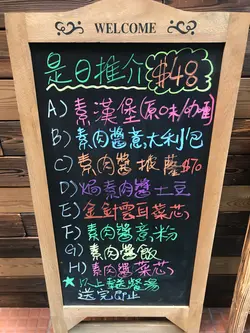 WELCOME
是日推介 $48
A) 素漢堡(原味/
B) 素肉醬意大利包
C) 素肉醬披薩$70
D) 焗素肉醬土豆
E) 金針雲耳菜芯
F) 素肉醬意粉
G) 素肉醬飯
H) 素肉醬菜芯
以上
送完即止